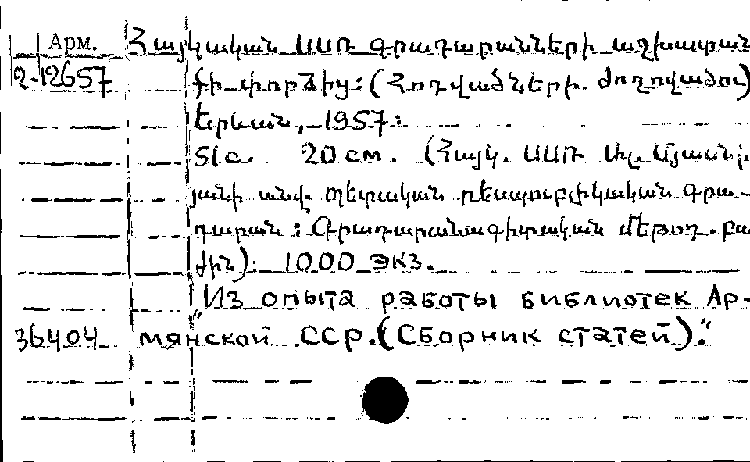 Арм. Հայկական ՍՍՌ գրադարանների աշխատան
2-12657 քի փորձից: (Հոդվածների ժողովածու)
Երևան, 1957:
51с. 20см. (Հայկ. ՍՍՌ Ալ. Մյասնի
յանի անվ. պետական ռեսպուբլիկական գրա-
դարան: Գրադարանագիտական մեթոդ. բա
ժին): 1000 экз.
"Из опыта работы библиотек Ар-
36404 мянской ССР. (Сборник статей)."